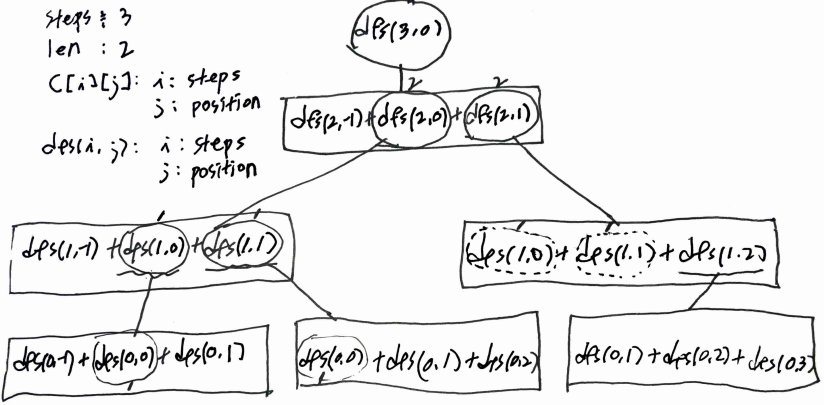 steps : 3
len : 2
C[i][j]: i: steps
j: position
dfs(i, j): i: steps
j: position
dfs(3,0)
2 2
dfs(2,-1)+dfs(2,0)+dfs(2,1)
1 1
dfs(1,-1) + dfs(1,0) + dfs(1,1)
1 1
dfs(1,0) + dfs(1,1) + dfs(1.2)
dfs(0,-1) + dfs(0,0) + dfs(0,1)
1
dfs(0,0) + dfs(0,1) + dfs(0,2)
1
dfs(0,1) + dfs(0,2) + dfs(0,3)